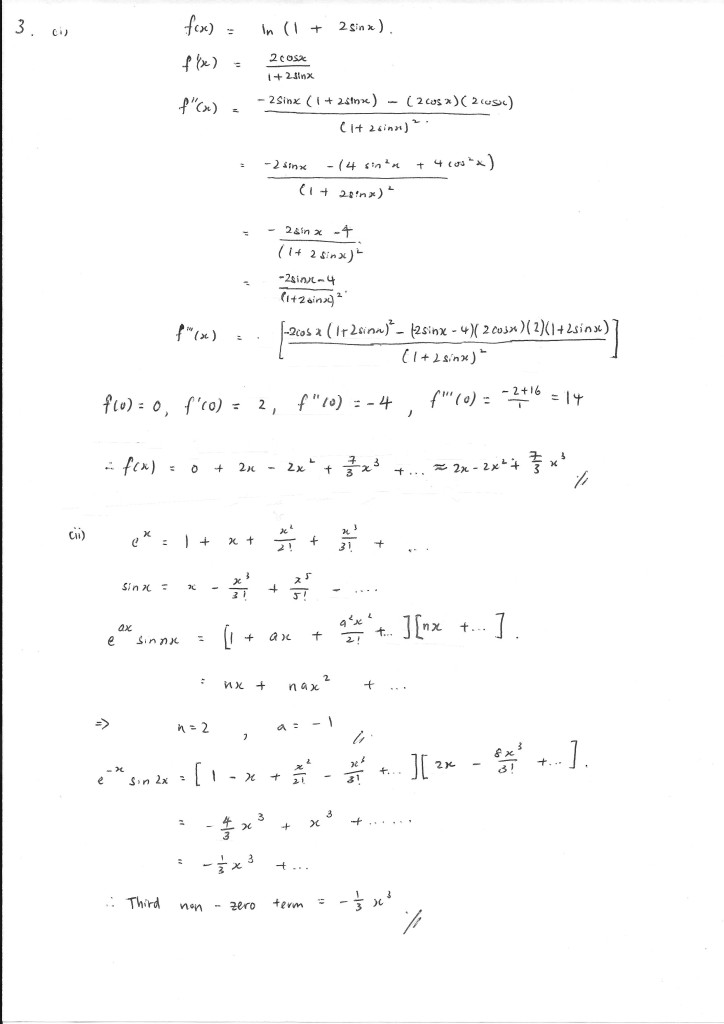 3. (i) f(x) = ln (1 + 2sinx).
f'(x) = 2cosx / 1+2sinx
f''(x) = -2sinx (1+2sinx) - (2cosx)(2cosx) / (1+2sinx)².
= -2sinx - (4 sin²x + 4cos²x) / (1 + 2sinx)²
= - 2sin x - 4 / (1+ 2sinx)²
= -2sinx-4 / (1+2sinx)².
f'''(x) = . [-2cosx (1+2sinx)² - (-2sinx - 4)(2cosx)(2)(1+2sinx) / (1+2sinx)²]
f(0) = 0, f'(0) = 2, f''(0) = -4, f'''(0) = -2+16 / 1 = 14
∴ f(x) = 0 + 2x - 2x² + 7/3 x³ + ... ≈ 2x - 2x² + 7/3 x³ //
(ii) e^x = 1 + x + x²/2! + x³/3! + ...
sinx = x - x³/3! + x⁵/5! - ....
e^ax sin nx = [1 + ax + a²x²/2! + ...][nx + ...].
= nx + nax² + ...
⇒ n=2, a= -1 //
e^-x sin 2x = [1 - x + x²/2! - x³/3! + ...][2x - 8x³/3! + ...].
= - 4/3 x³ + x³ + ......
= - 1/3 x³ + ...
∴ Third non-zero term = - 1/3 x³ //